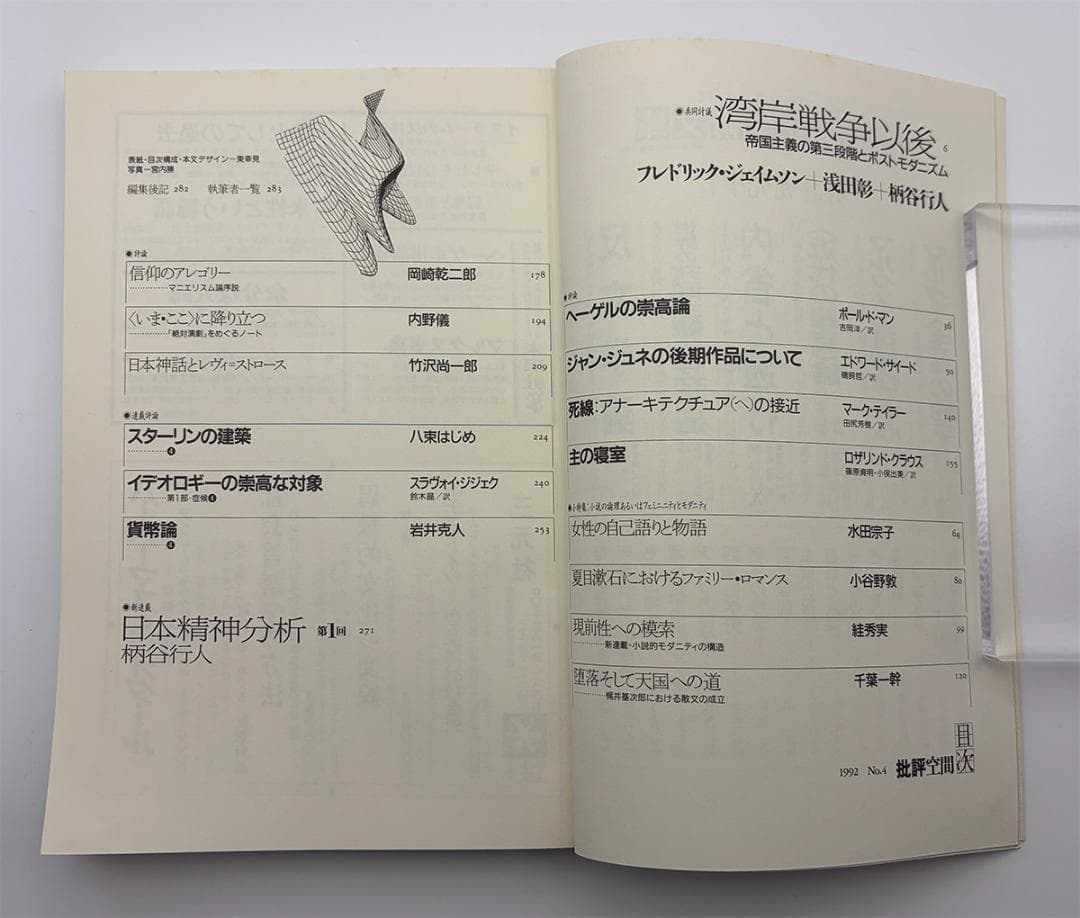 ●共同討議
湾岸戦争以後 6
帝国主義の第三段階とポストモダニズム
フレドリック・ジェイムソン+浅田彰+柄谷行人
●評論
ヘーゲルの崇高論 ポール・ド・マン 36
吉岡洋/訳
ジャン・ジュネの後期作品について エドワード・サイード 50
鵜飼哲/訳
死線:アナーキテクチュア(へ)の接近 マーク・テイラー 140
田尻芳樹/訳
主の寝室 ロザリンド・クラウス 155
篠原資明・小俣出美/訳
●小特集:小説の論理あるいはフェミニニティとモダニティ
女性の自己語りと物語 水田宗子 64
夏目漱石におけるファミリー・ロマンス 小谷野敦 80
現前性への模索 絓秀実 99
新連載・小説的モダニティの構造
堕落そして天国への道 千葉一幹 120
梶井基次郎における散文の成立
1992 No.4 批評空間 目次
表紙・目次構成・本文デザイン―東幸見
写真―宮内勝
編集後記 282 執筆者一覧 283
●評論
信仰のアレゴリー 岡崎乾二郎 178
マニエリスム論序説
〈いま・ここ〉に降り立つ 内野儀 194
「絶対演劇」をめぐるノート
日本神話とレヴィ=ストロース 竹沢尚一郎 209
●連載評論
スターリンの建築 八束はじめ 224
❹
イデオロギーの崇高な対象 スラヴォイ・ジジェク 240
第1部・症候❹ 鈴木晶/訳
貨幣論 岩井克人 253
❹
●新連載
日本精神分析 第1回 271
柄谷行人